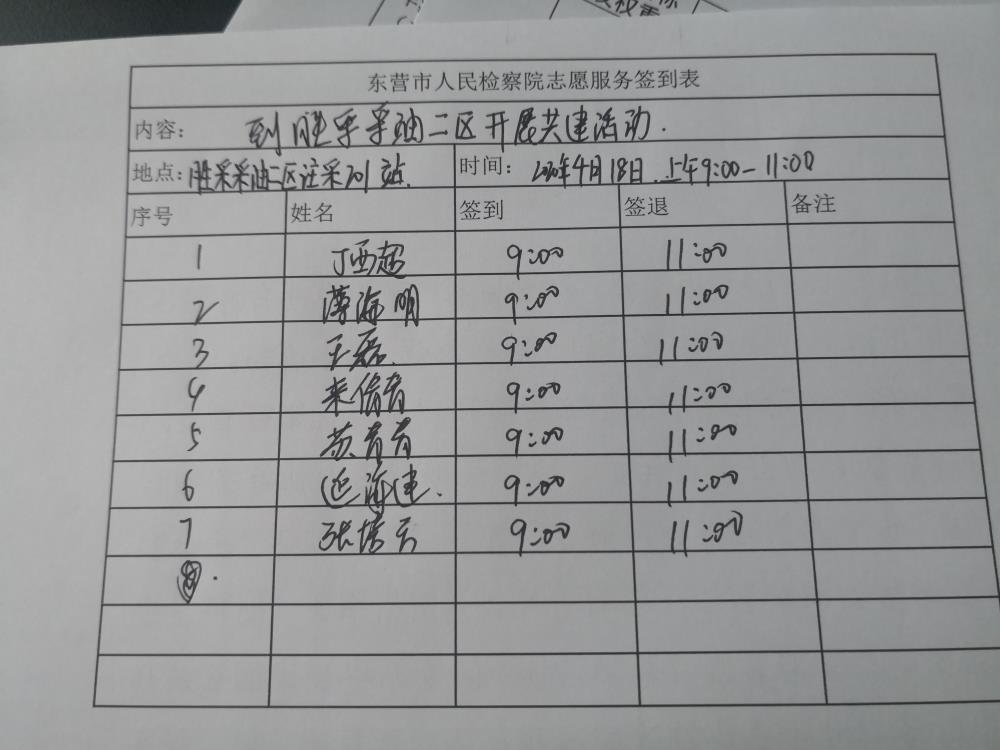 东营市人民检察院志愿服务签到表
内容: 到胜采采油二区开展共建活动.
地点: 胜采采油二区注采201站. 时间: 4月18日.上午9:00-11:00
序号 姓名 签到 签退 备注
1 丁西超 9:00 11:00
2 薄海明 9:00 11:00
3 王磊. 9:00 11:00
4 9:00 11:00
5 苏青青 9:00 11:00
6 延海建. 9:00 11:00
7 张 9:00 11:00